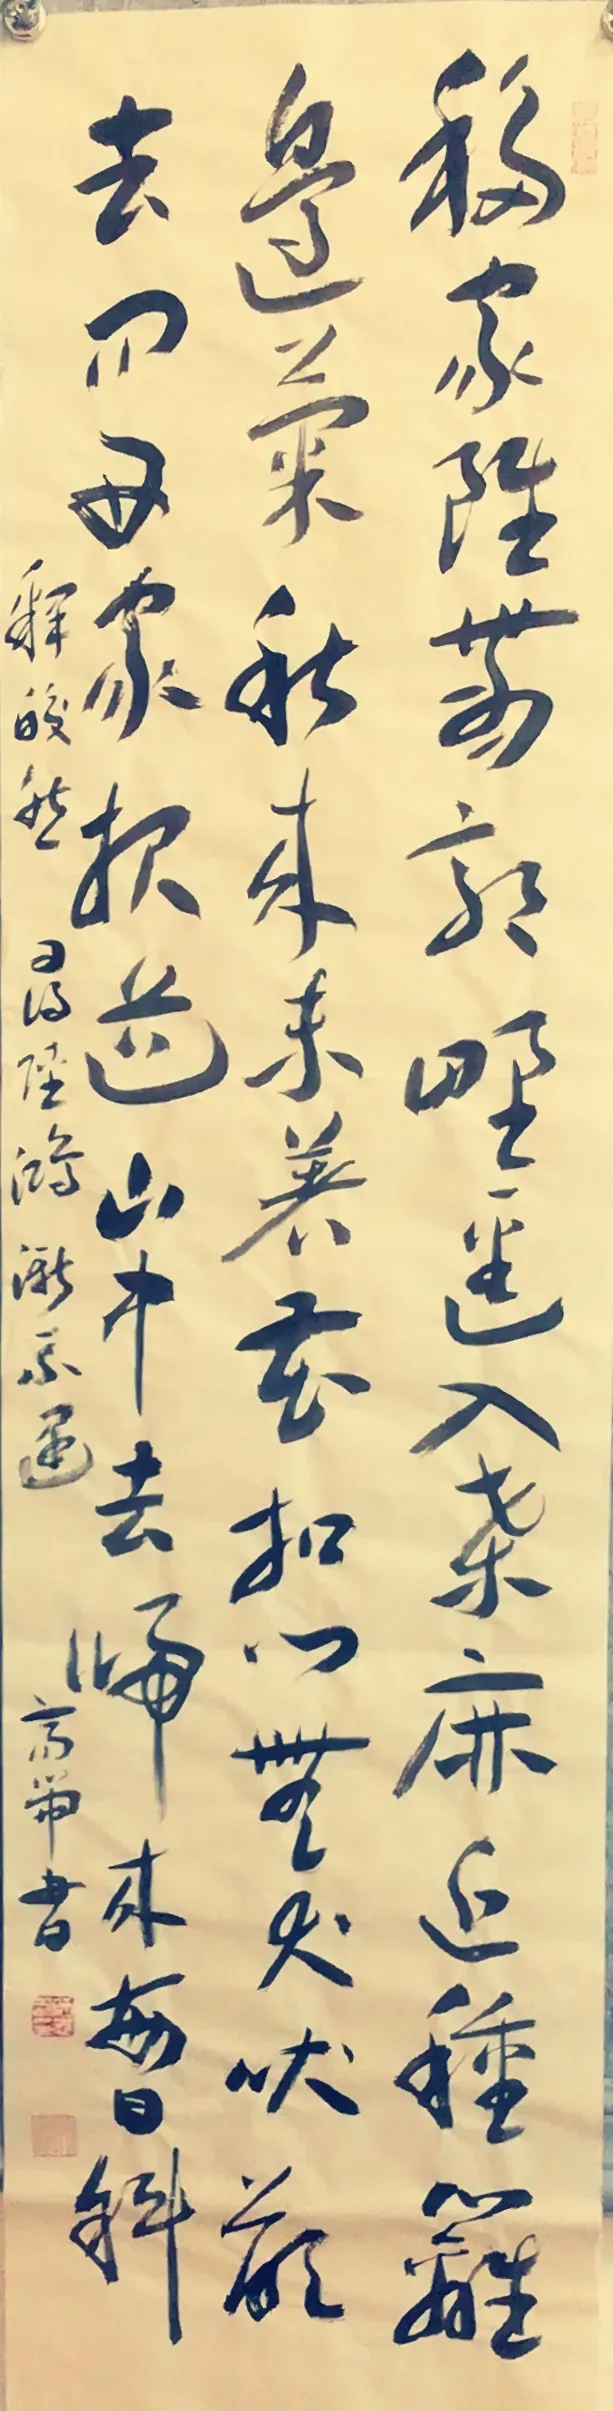 移家雖帶郭野徑入桑麻近種籬
邊菊秋來未著花扣門無犬吠欲
去問西家報道山中去歸來每日斜
釋皎然 尋陸鴻漸不遇 書